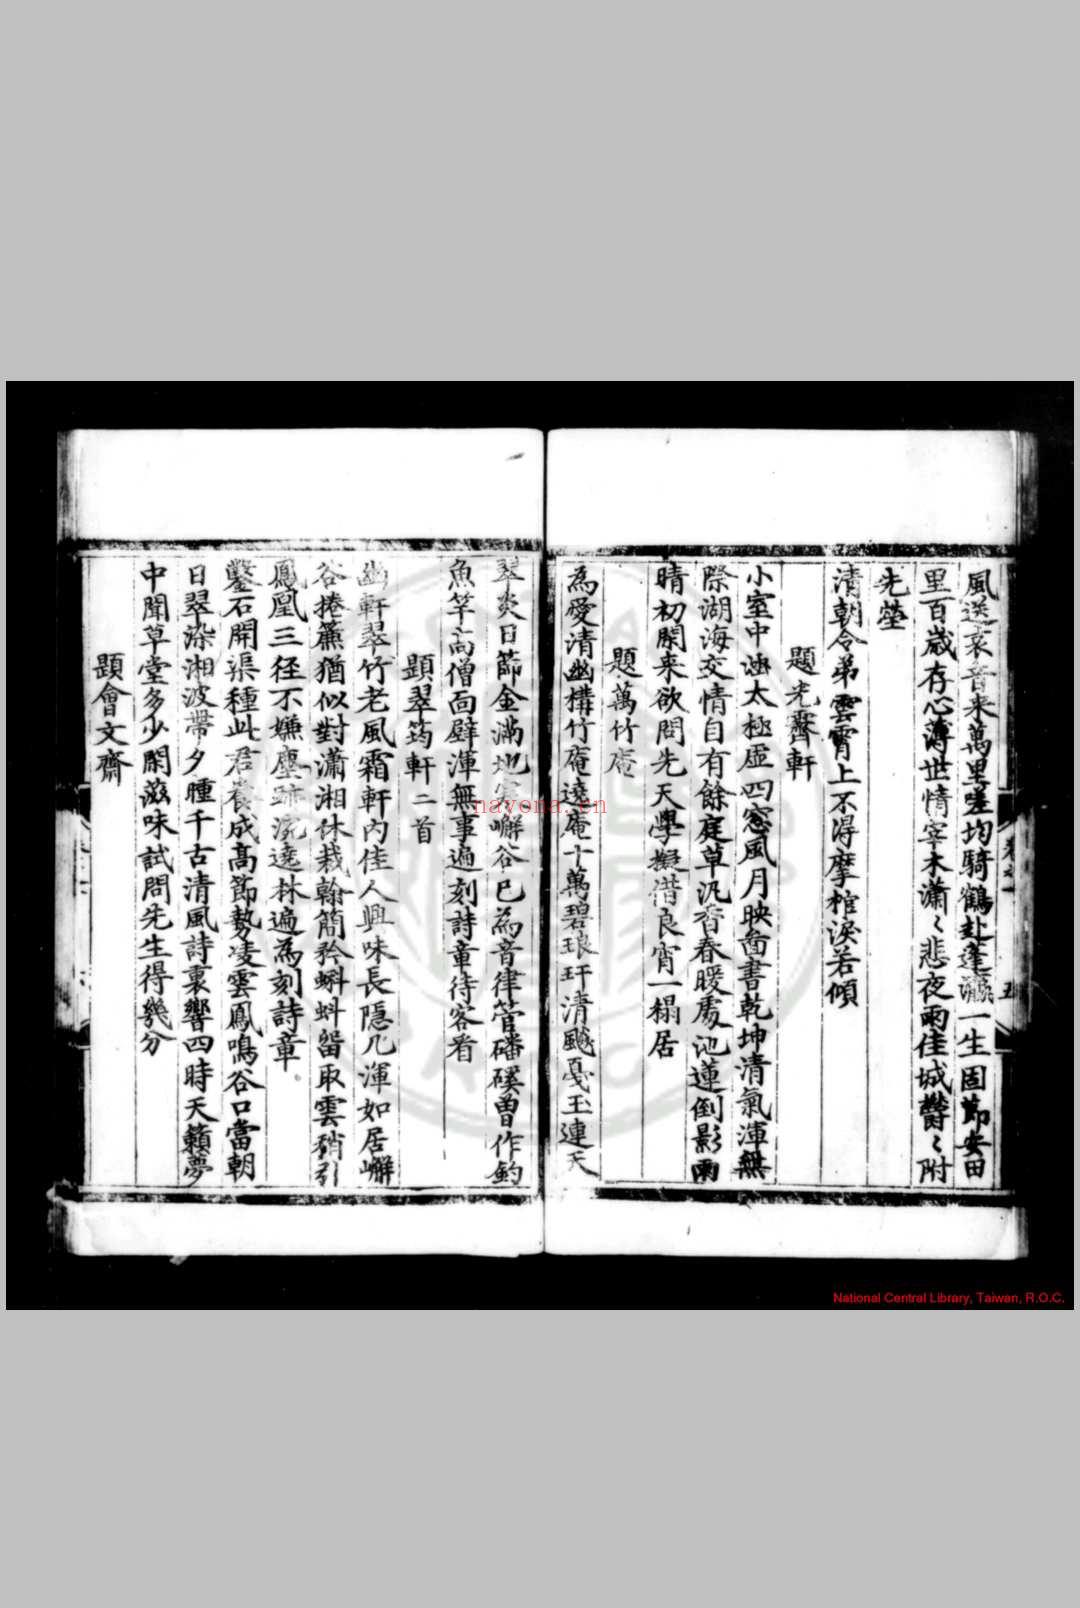 風送哀音来萬里嗟均騎鶴赴蓬瀛一生固節安田
里百歲存心薄世情宰木瀟〻悲夜雨佳城欝〻附
先塋
清朝令弟雲霄上不得摩棺淚若傾
題光霽軒
小室中涵太極虛四窓風月映啚書乾坤清氣渾無
際湖海交情自有餘庭草汎香春暖處池蓮倒影雨
晴初閑来欲問先天學擬借良宵一榻居
題萬竹庵
為愛清幽構竹庵遶庵十萬碧琅玕清飈戛玉連天
翠炎日篩金滿地寒嶰谷已為音律管磻磎曽作釣
魚竿高僧面壁渾無事遍刻詩章待客看
題翠筠軒二首
幽軒翠竹老風霜軒內佳人興味長隱几渾如居嶰
谷捲簾猶似對瀟湘休裁翰簡矜蝌蚪留取雲稍引
鳳凰三徑不嫌塵跡流遶林遍為刻詩章
鑿石開渠種此君養成高節勢凌雲鳳鳴谷口當朝
日翠染湘波帶夕曛千古清風詩裏響四時天籟夢
中聞草堂多少閑滋味試問先生得幾分
題會文齋
卷之一
五
nayona.cn
National Central Library, Taiwan, R.O.C.